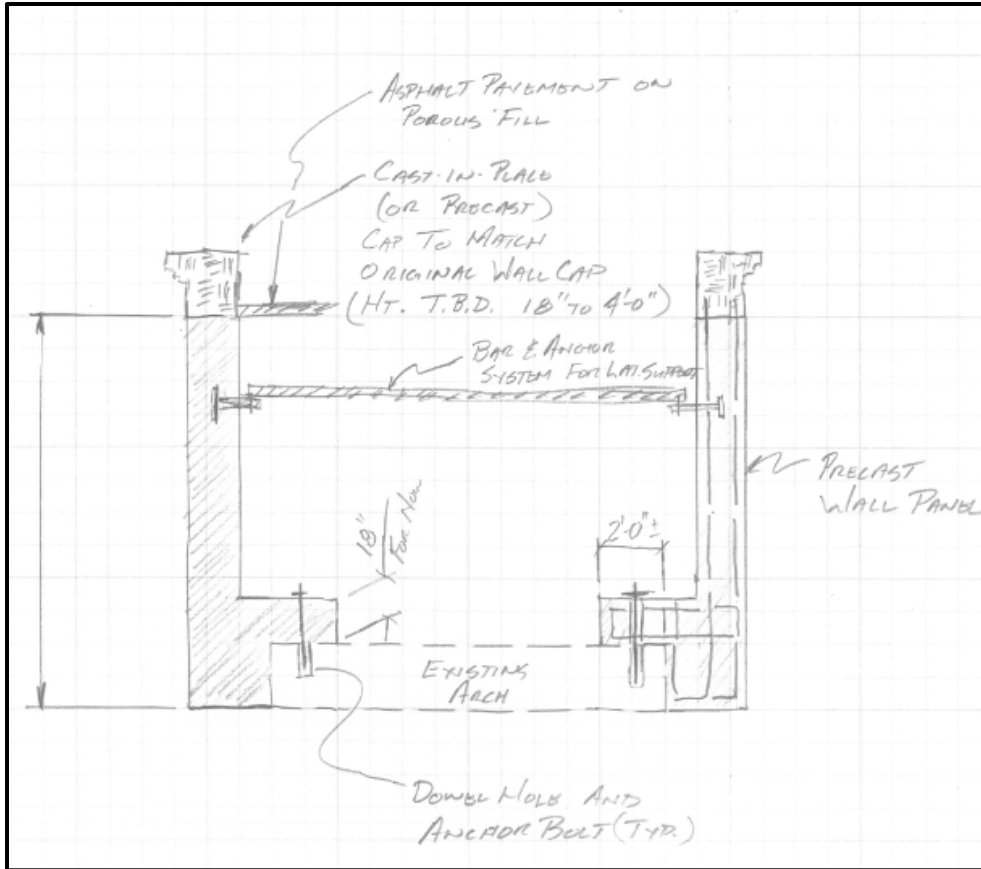 ASPHALT PAVEMENT ON
POROUS FILL
CAST-IN-PLACE
(OR PRECAST)
CAP TO MATCH
ORIGINAL WALL CAP
(HT. T.B.D. 18" TO 4'-0")
BAR & ANCHOR
SYSTEM FOR LAT. SUPPORT
PRECAST
WALL PANEL
18"
FOR NOW
2'-0"±
EXISTING
ARCH
DOWEL HOLE AND
ANCHOR BOLT (TYP.)